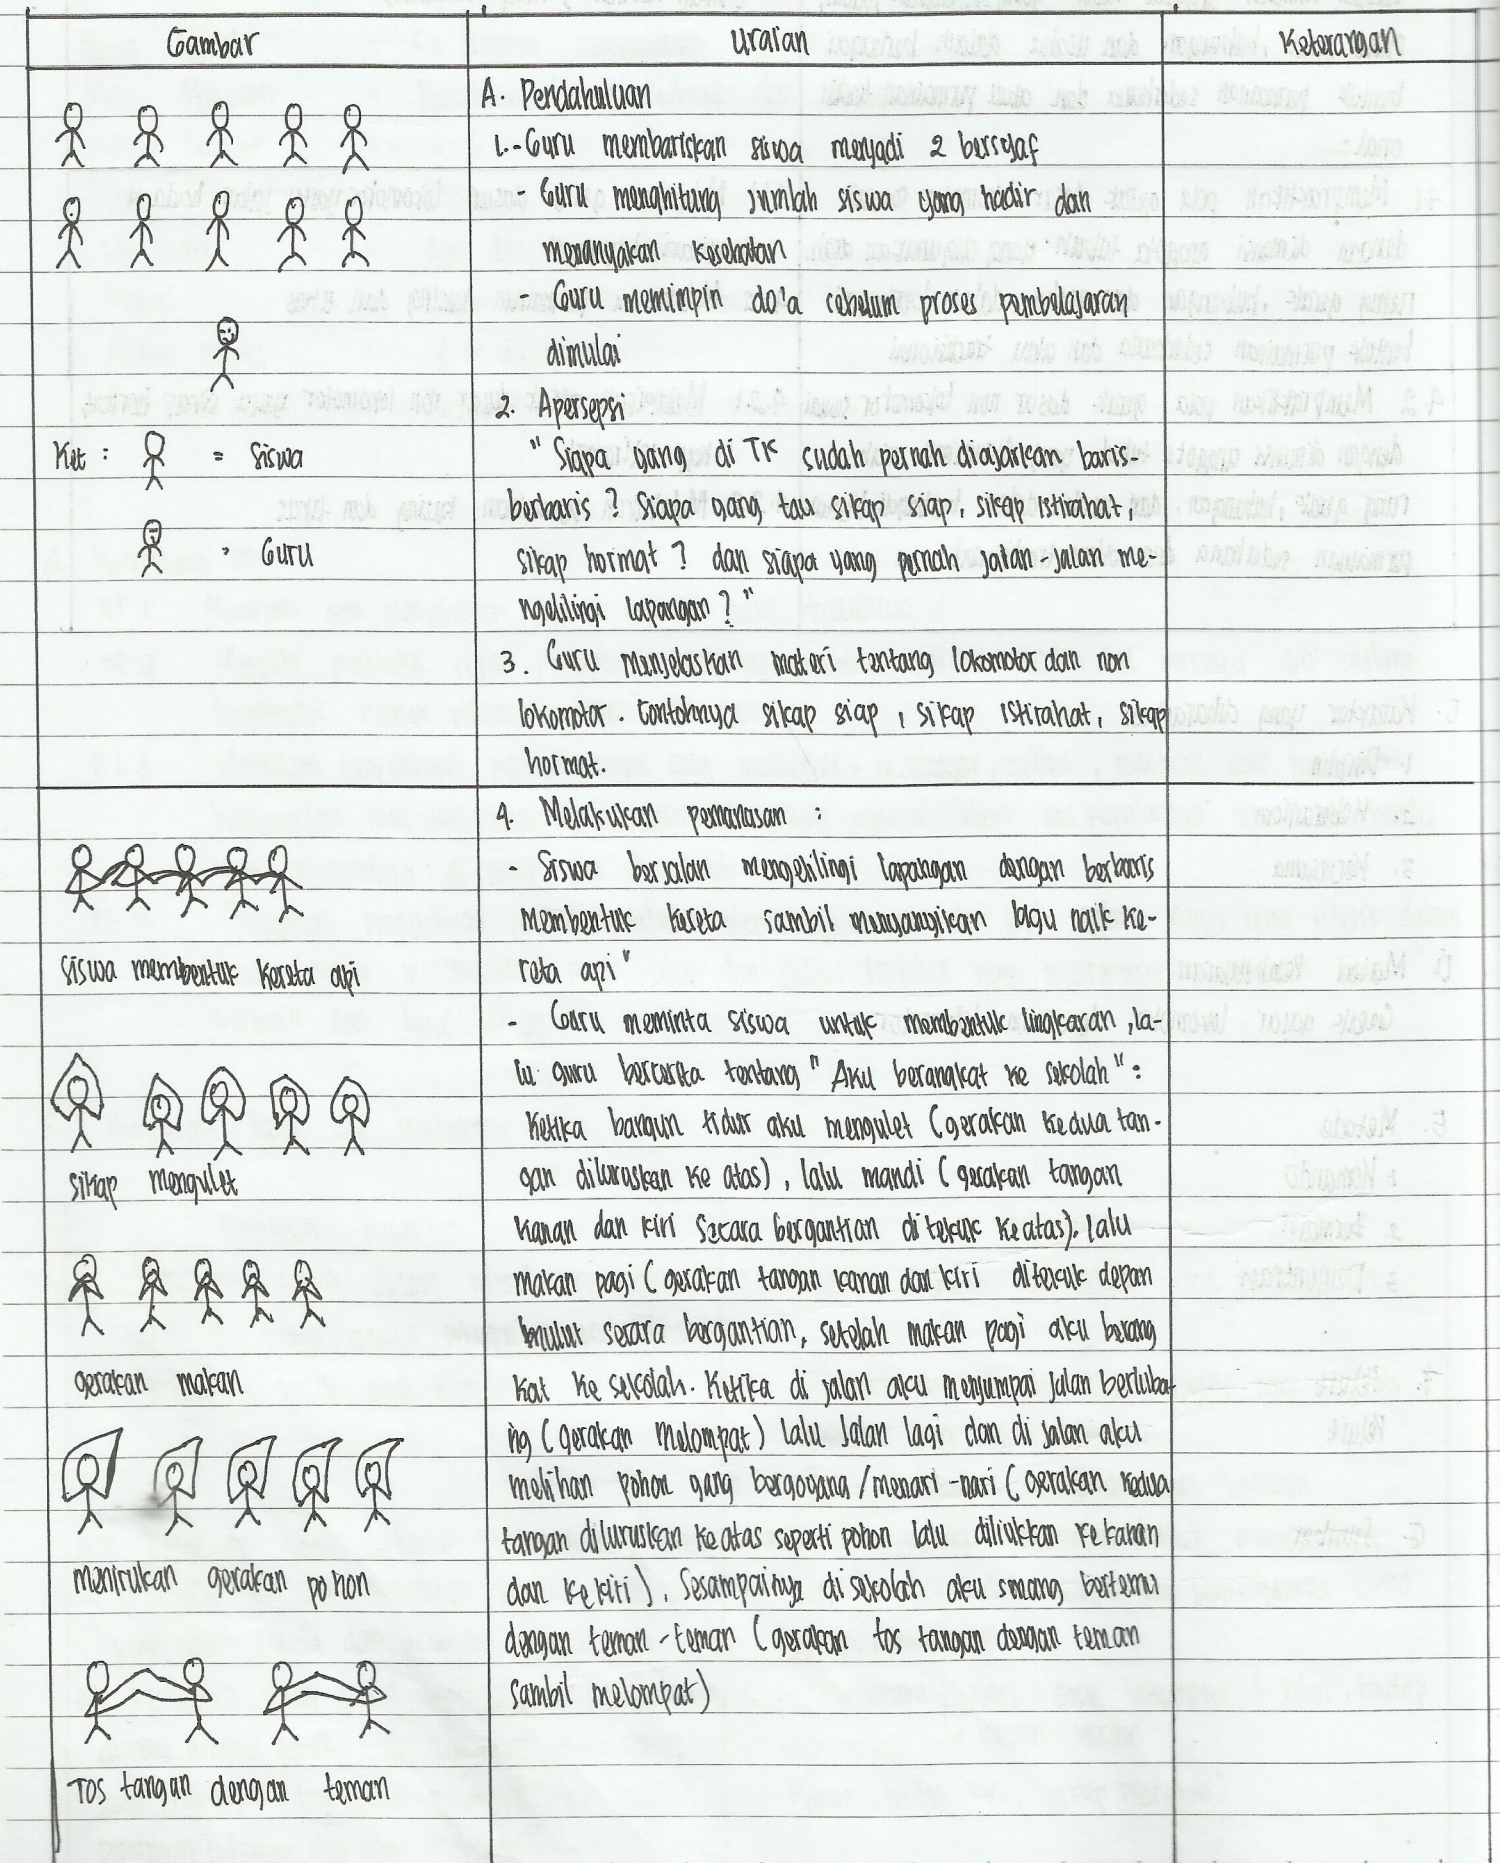 Gambar
Uraian
Keterangan
A. Pendahuluan
1. - Guru membariskan siswa menjadi 2 bersyaf
- Guru menghitung jumlah siswa yang hadir dan
menanyakan kesehatan
- Guru memimpin do'a sebelum proses pembelajaran
dimulai
2. Apersepsi
" Siapa yang di TK sudah pernah diajarkan baris-
berbaris ? Siapa yang tau sikap siap, sikap istirahat,
sikap hormat ? dan siapa yang pernah jalan-jalan me-
ngelilingi lapangan ? "
3. Guru menjelaskan materi tentang lokomotor dan non
lokomotor. Contohnya sikap siap, sikap istirahat, sikap
hormat.
Ket : = Siswa
= Guru
4. Melakukan pemanasan :
- Siswa berjalan mengelilingi lapangan dengan berbaris
membentuk kereta sambil menyanyikan lagu naik ke-
reta api "
- Guru meminta siswa untuk membentuk lingkaran, la-
lu guru bercerita tentang " Aku berangkat ke sekolah " :
Ketika bangun tidur aku mengulet (gerakan kedua tan-
gan diluruskan ke atas), lalu mandi (gerakan tangan
kanan dan kiri secara bergantian ditekuk keatas). lalu
makan pagi (gerakan tangan kanan dan kiri ditekuk depan
mulut secara bergantian, setelah makan pagi aku berang
kat ke sekolah. Ketika di jalan aku menjumpai jalan berluba-
ng (gerakan melompat) lalu jalan lagi dan di jalan aku
melihan pohon yang bergoyang / menari-nari (gerakan kedua
tangan diluruskan keatas seperti pohon lalu diliukkan kekanan
dan kekiri). Sesampainya disekolah aku senang bertemu
dengan teman-teman (gerakan tos tangan dengan teman
sambil melompat)
siswa membentuk kereta api
sikap mengulet
gerakan makan
menirukan gerakan pohon
Tos tangan dengan teman